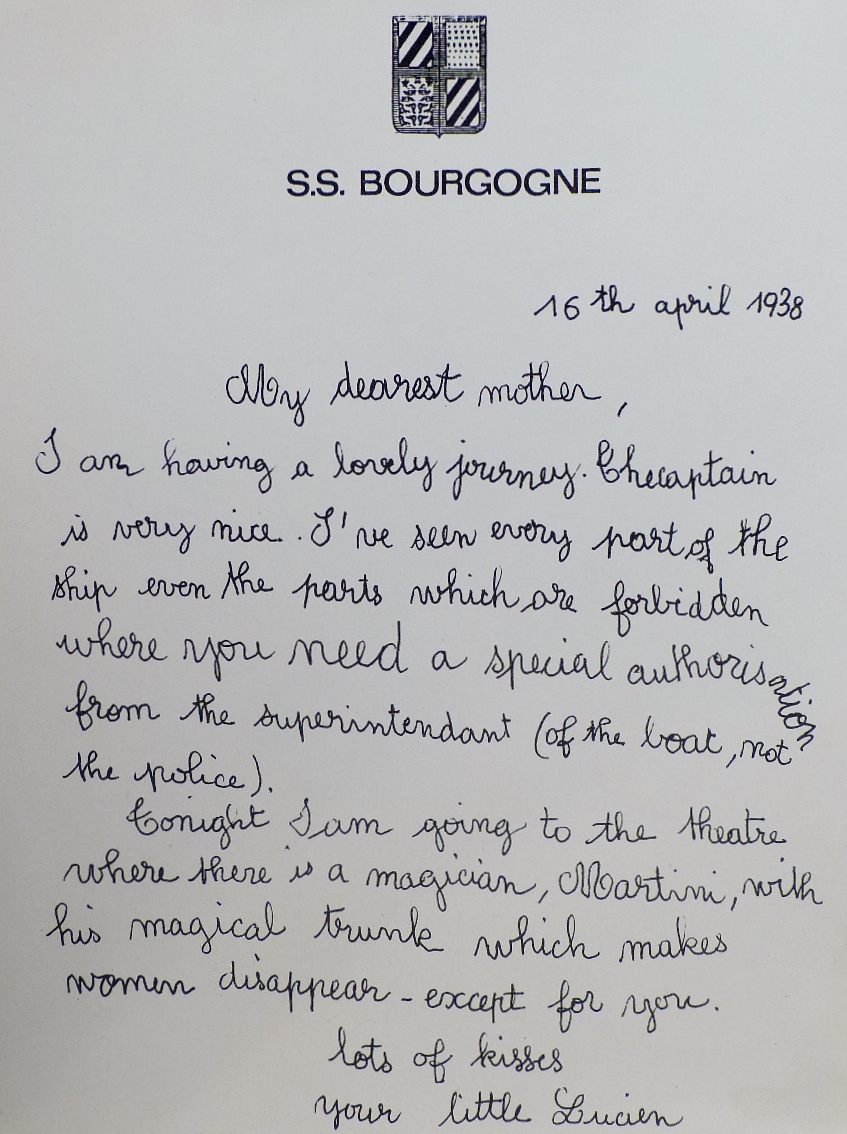 S.S. BOURGOGNE
16th april 1938
My dearest mother,
I am having a lovely journey. The captain
is very nice. I've seen every part of the
ship even the parts which are forbidden
where you need a special authorisation
from the superintendant (of the boat, not
the police).
Tonight I am going to the theatre
where there is a magician, Martini, with
his magical trunk which makes
women disappear - except for you.
lots of kisses
your little Lucien